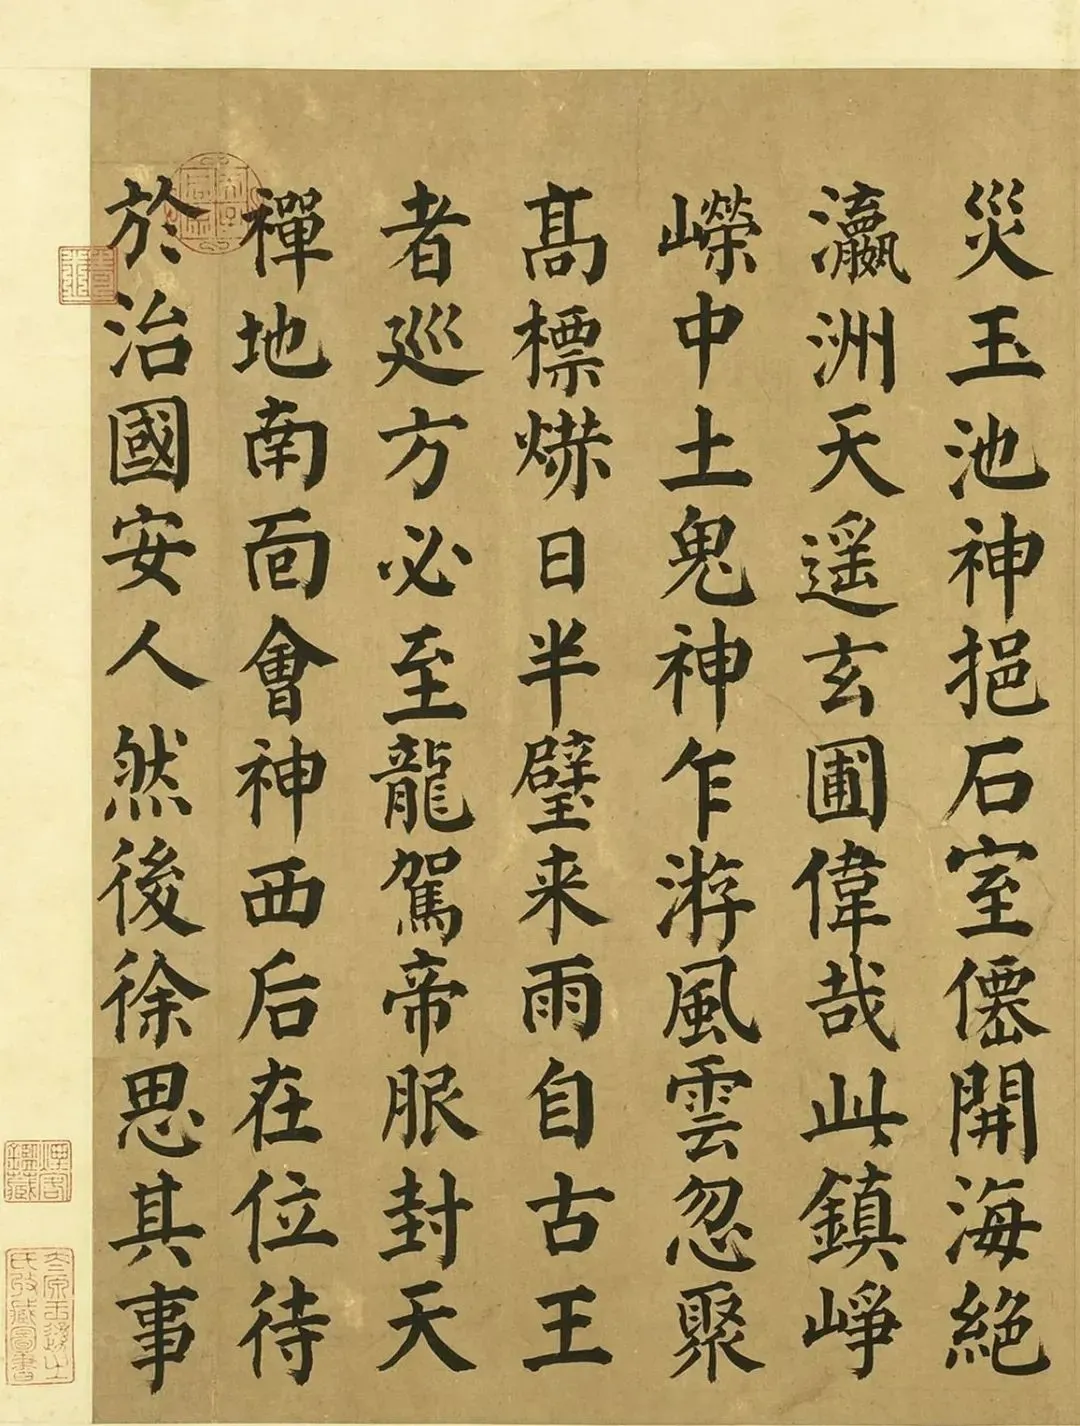 災玉池神挹石室僊開海絶
瀛洲天遥玄圃偉哉此鎮崢
嶸中土鬼神乍游風雲忽聚
髙標爀日半壁来雨自古王
者巡方必至龍駕帝服封天
禪地南面會神西后在位待
於治國安人然後徐思其事